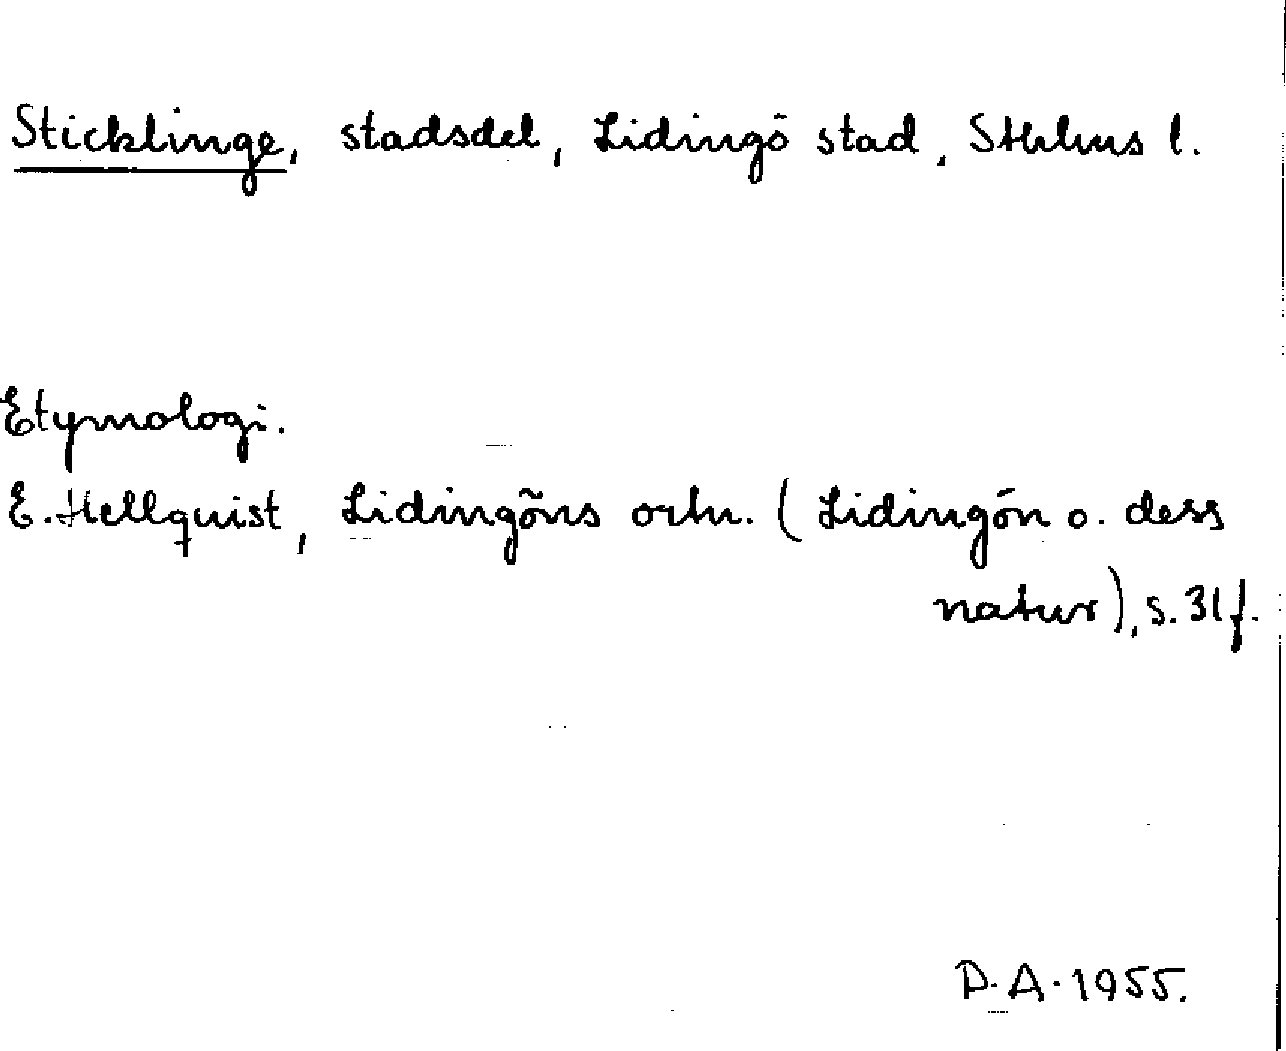 Sticklinge, stadsdel, Lidingö stad, Sthlms l.
Etymologi.
E. Hellquist, Lidingöns ortn. (Lidingön o. dess
natur), s. 31 f.
D. A. 1955.